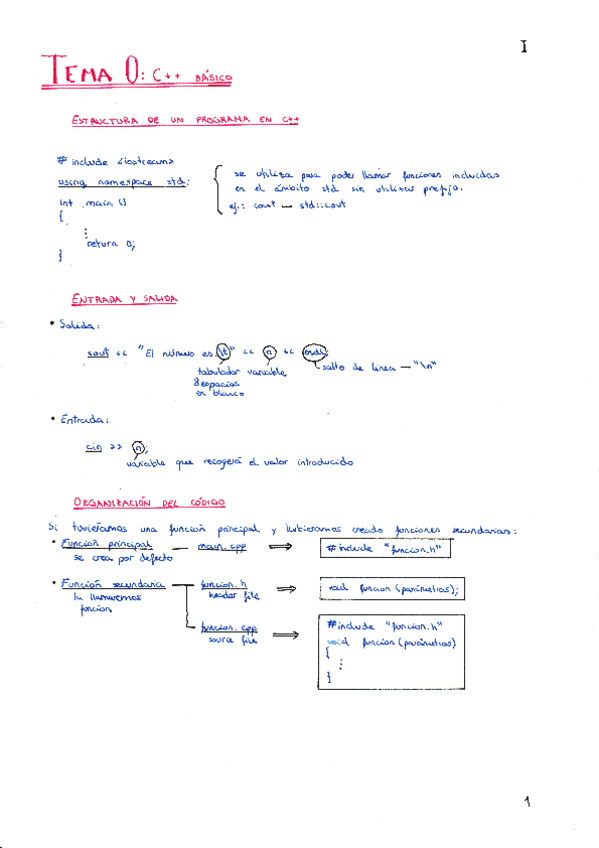 I
TEMA 0: C++ BÁSICO
ESTRUCTURA DE UN PROGRAMA EN C++
# include <iostream>
using namespace std;
se utiliza para poder llamar funciones incluidas
en el ámbito std sin utilizar prefijo.
ej.: cout — std::cout
int main ()
{
⋮
return 0;
}
ENTRADA Y SALIDA
• Salida:
cout << "El número es:\t" << n << endl;
tabulador variable
8 espacios
en blanco
salto de línea — "\n"
• Entrada:
cin >> n;
variable que recogerá el valor introducido
ORGANIZACIÓN DEL CÓDIGO
Si tuvieramos una función principal y hubieramos creado funciones secundarias:
• Función principal — main.cpp ⇒ #include "funcion.h"
se crea por defecto
• Función secundaria — funcion.h ⇒ void funcion (parámetros);
la llamaremos header file
funcion
funcion.cpp ⇒ #include "funcion.h"
source file void funcion (parámetros)
{
⋮
}
1